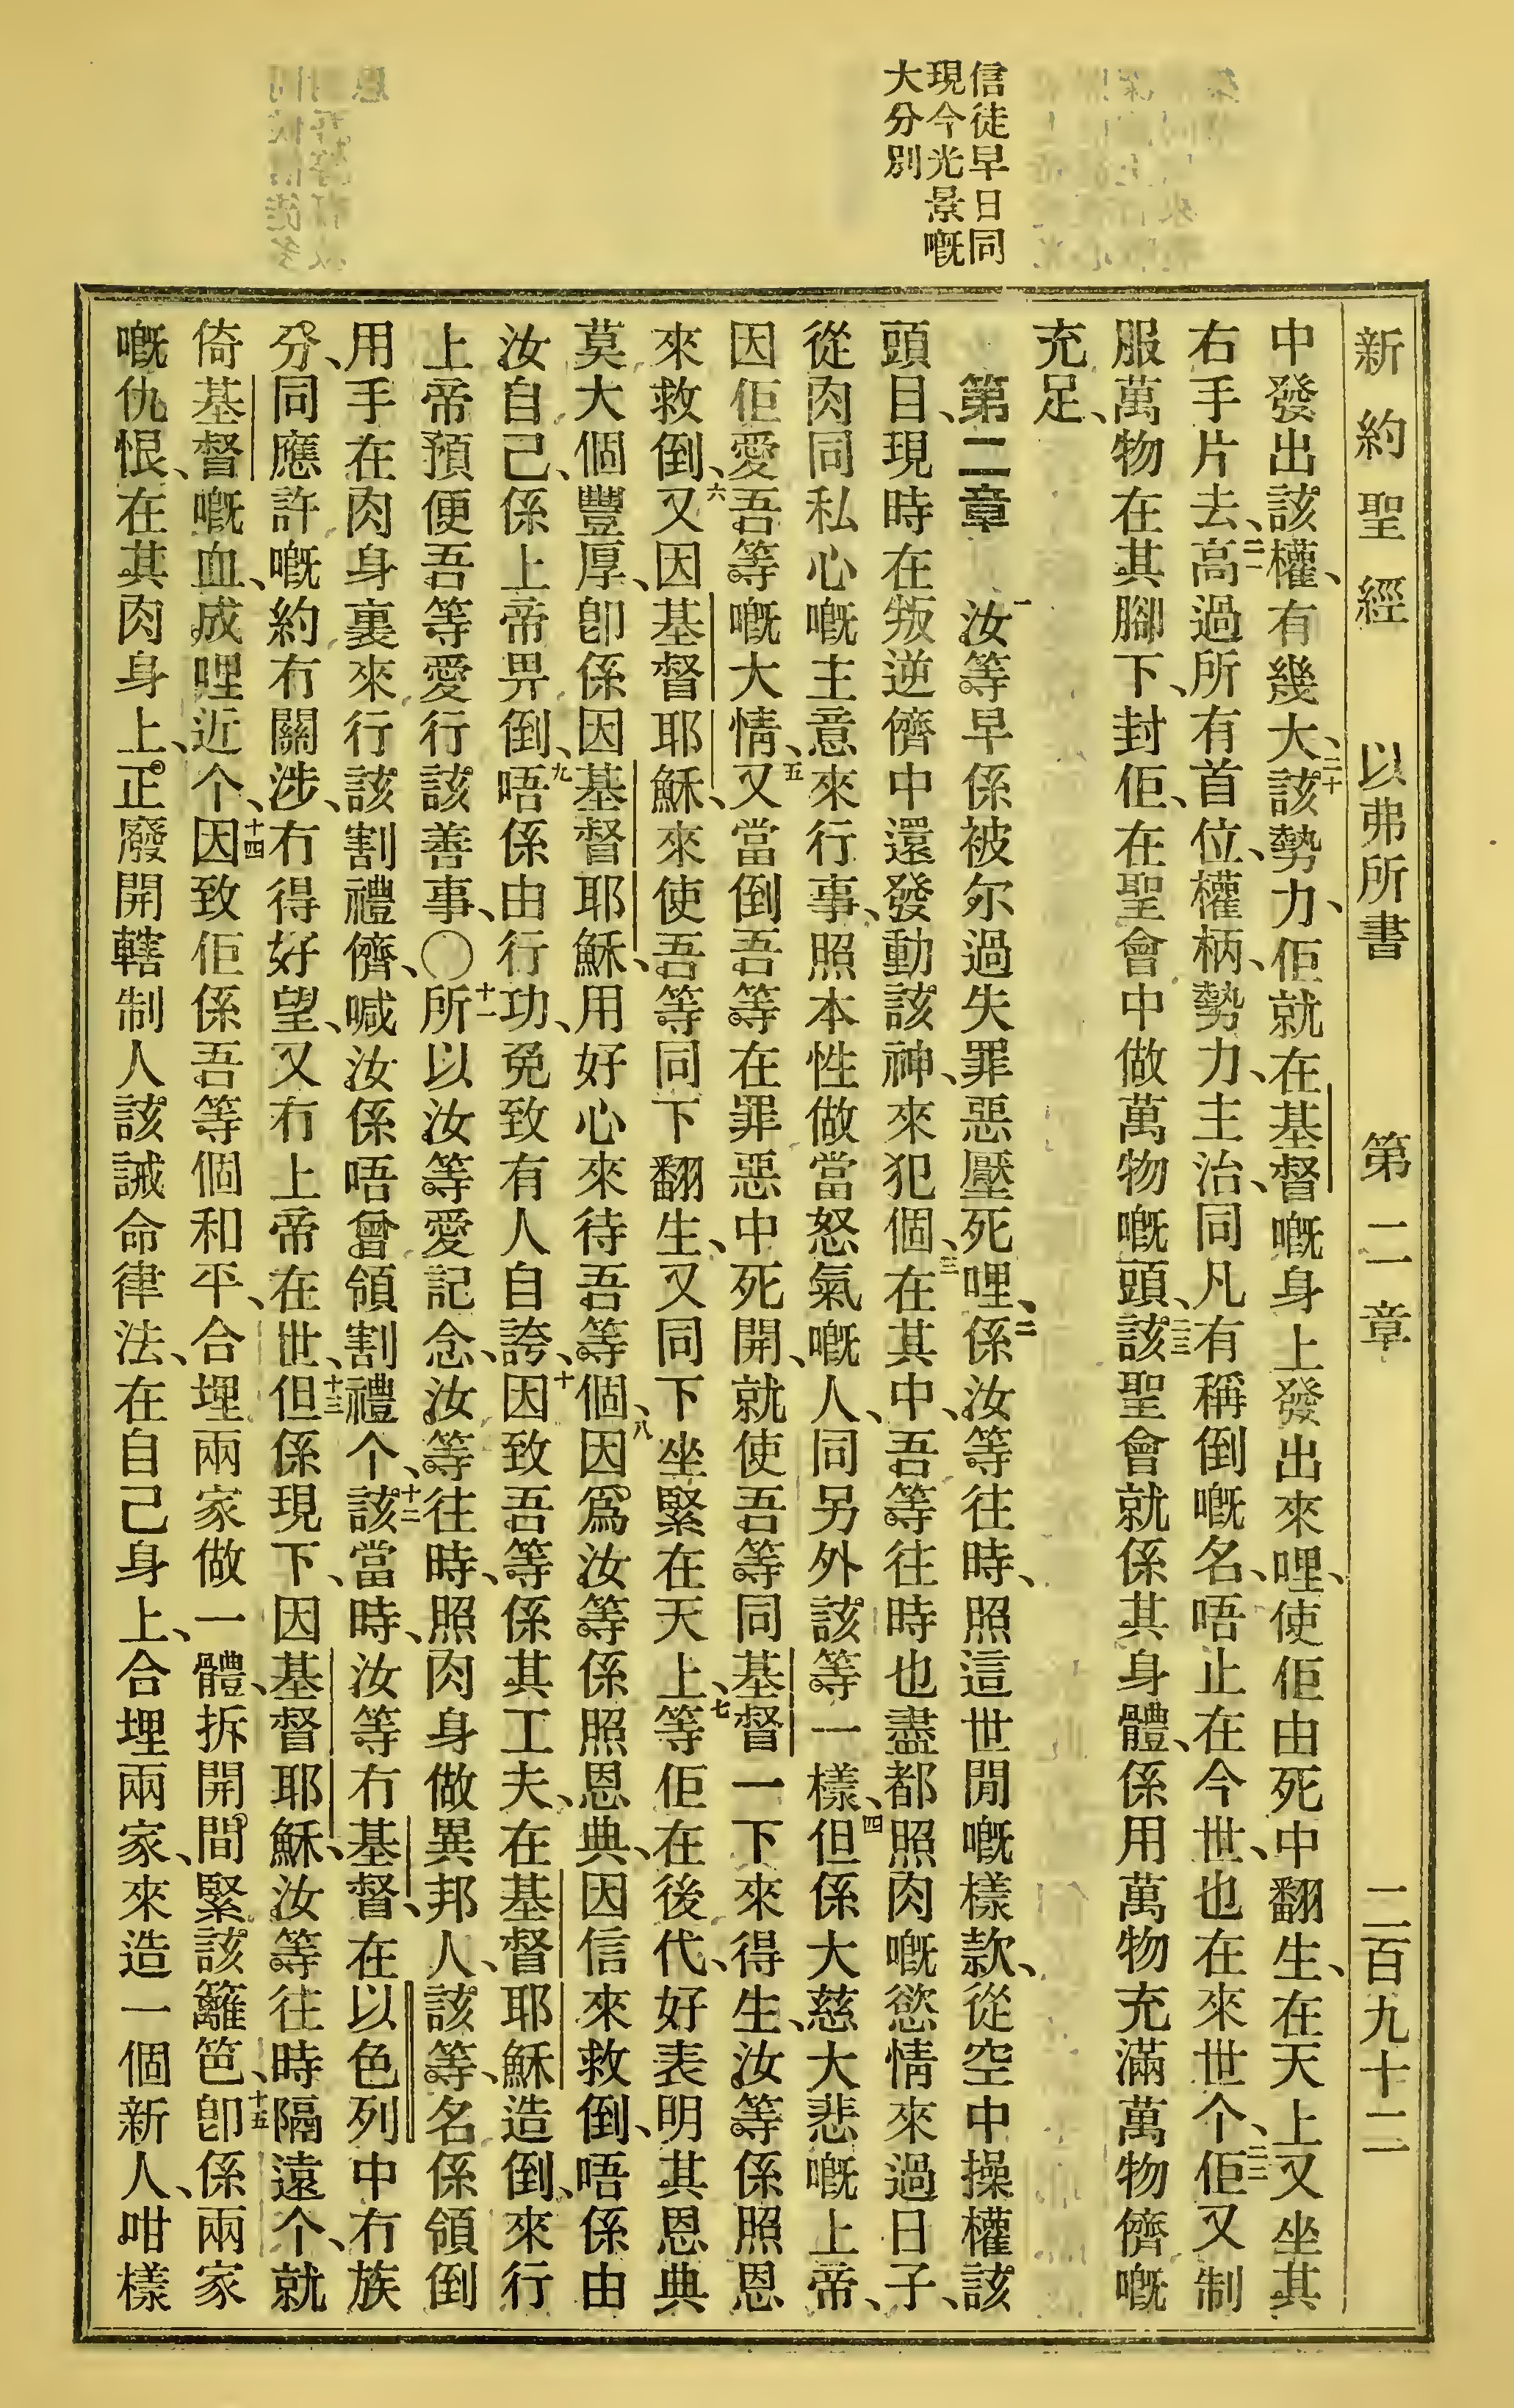 新約聖經　以弗所書　第二章　二百九十二
信徒早日同
現今光景嘅
大分別
中發出該權、有幾大、二十該勢力、佢就在基督嘅身上發出來哩、使佢由死中翻生、在天上又坐其
右手片去、二一高過所有首位、權柄、勢力、主治、同凡有稱倒嘅名、唔止在今世、也在來世个、二二佢又制
服萬物在其腳下、封佢、在聖會中做萬物嘅頭、二三該聖會就係其身體、係用萬物充滿萬物儕嘅
充足、
第二章　一汝等早係被尔過失罪惡壓死哩、二係汝等往時、照這世間嘅樣款、從空中操權該
頭目、現時在叛逆儕中還發動該神、來犯個、三在其中、吾等往時也盡都照肉嘅慾情來過日子、
從肉同私心嘅主意來行事、照本性做當怒氣嘅人、同另外該等一樣、四但係大慈大悲嘅上帝、
因佢愛吾等嘅大情、五又當倒吾等在罪惡中死開、就使吾等同基督一下來得生、汝等係照恩
來救倒、六又因基督耶穌、來使吾等同下翻生、又同下坐緊在天上、七等佢在後代、好表明其恩典
莫大個豐厚、卽係因基督耶穌、用好心來待吾等個、八因爲汝等係照恩典、因信來救倒、唔係由
汝自己、係上帝畀倒、九唔係由行功、免致有人自誇、十因致吾等係其工夫、在基督耶穌造倒、來行
上帝預便吾等愛行該善事、〇十一所以汝等愛記念、汝等往時、照肉身做異邦人、該等、名係領倒
用手在肉身裏來行該割禮儕、喊汝係唔曾領割禮个、十二該當時、汝等冇基督、在以色列中冇族
分、同應許嘅約冇關涉、冇得好望、又冇上帝在世、十三但係現下、因基督耶穌、汝等往時隔遠个、就
倚基督嘅血、成哩近个、十四因致佢係吾等個和平、合埋兩家做一體、拆開間緊該籬笆、十五卽係兩家
嘅仇恨、在其肉身上、正廢開轄制人該誡命律法、在自己身上、合埋兩家、來造一個新人、咁樣